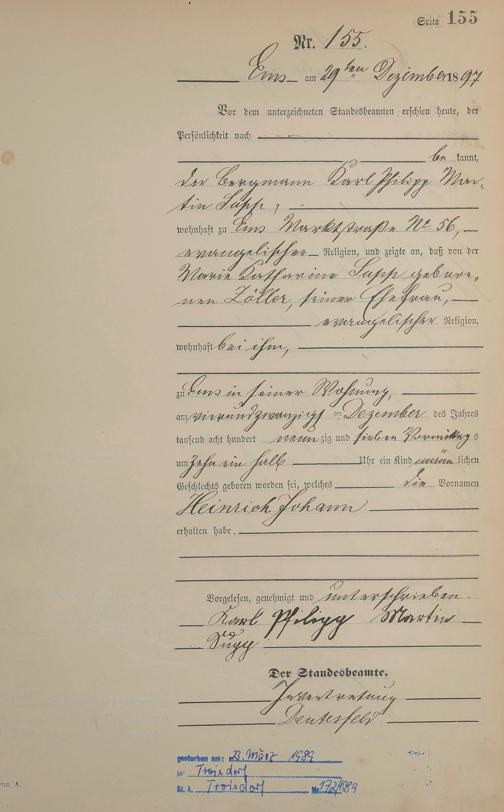 Seite 155
Nr. 155.
Ems am 29ten Dezember 1897
Vor dem unterzeichneten Standesbeamten erschien heute, der
Persönlichkeit nach
be kannt,
der Bergmann Karl Philipp Mar-
tin
wohnhaft zu Ems Marktstraße No 56,
evangelischer Religion, und zeigte an, daß von der
Marie Katharine gebore-
nen Zöller, seiner Ehefrau,
evangelischer Religion,
wohnhaft bei ihm,
zu Ems in seiner Wohnung,
am vierundzwanzigsten Dezember des Jahres
tausend acht hundert neunzig und sieben Vormittags
um zehn ein halb Uhr ein Kind männlichen
Geschlechts geboren worden sei, welches die Vornamen
Heinrich Johann
erhalten habe.
Vorgelesen, genehmigt und unterschrieben.
Karl Philipp Martin
Der Standesbeamte.
In Vertretung
gestorben am: März 1989
in Troisdorf
St. A. Troisdorf Nr. 172/1989